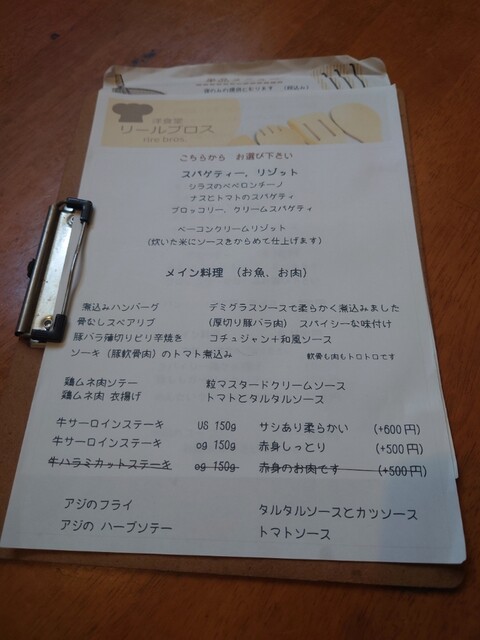 洋食堂
リールブロス
rire bros.
こちらから お選び下さい
スパゲティー、リゾット
シラスのペペロンチーノ
ナスとトマトのスパゲティ
ブロッコリー、クリームスパゲティ
ベーコンクリームリゾット
(炊いた米にソースをからめて仕上げます)
メイン料理 (お魚、お肉)
煮込みハンバーグ デミグラスソースで柔らかく煮込みました
骨なしスペアリブ (厚切り豚バラ肉) スパイシーな味付け
豚バラ薄切りピリ辛焼き コチュジャン+和風ソース
ソーキ (豚軟骨肉) のトマト煮込み 軟骨も肉もトロトロです
鶏ムネ肉ソテー 粒マスタードクリームソース
鶏ムネ肉 衣揚げ トマトとタルタルソース
牛サーロインステーキ US 150g サシあり柔らかい (+600円)
牛サーロインステーキ og 150g 赤身しっとり (+500円)
牛ハラミカットステーキ og 150g 赤身のお肉です (+500円)
アジのフライ タルタルソースとカツソース
アジの ハーブソテー トマトソース